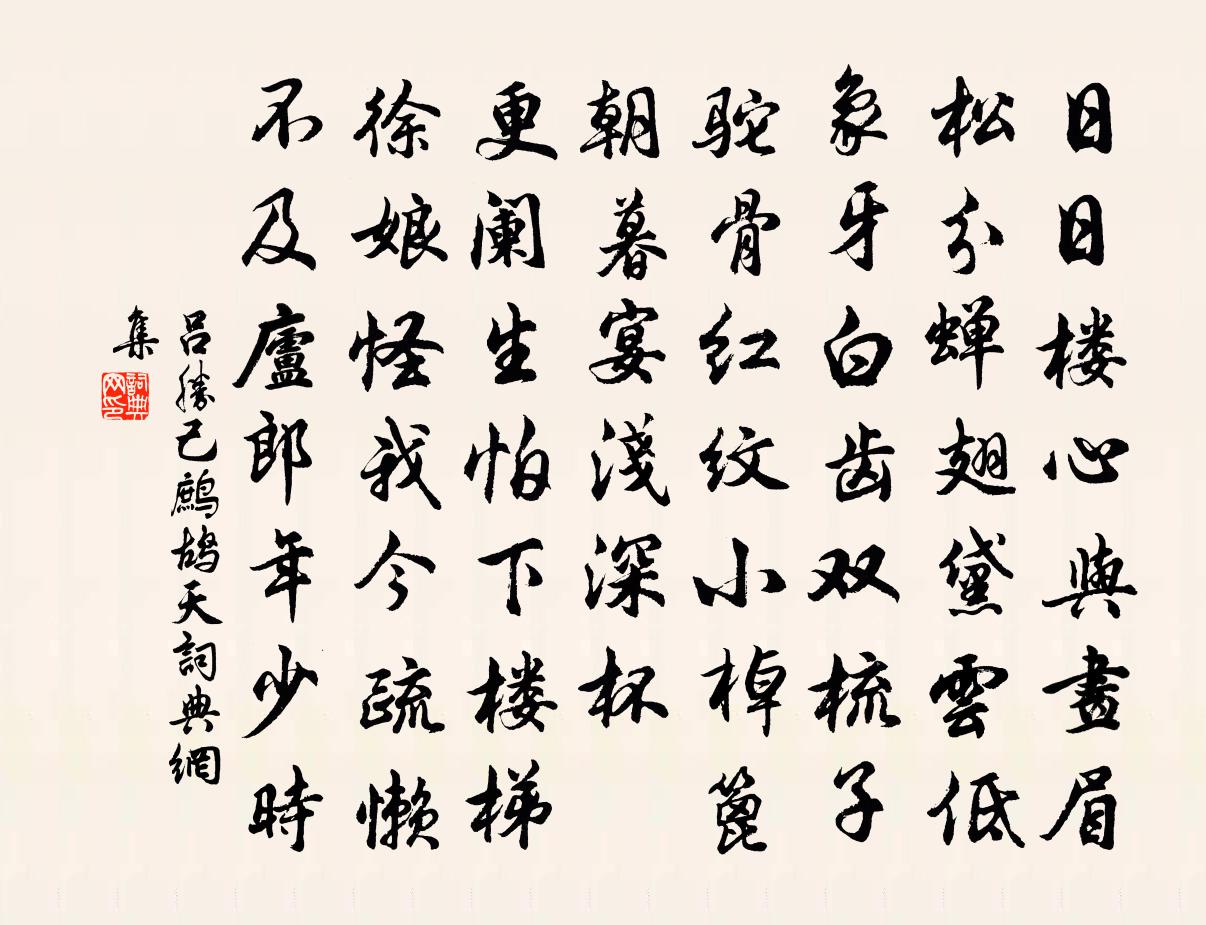 日日楼心與畫眉
松分蟬翅黛雲低
象牙白齿双梳子
驼骨红纹小棹篦
朝暮宴淺深杯
更阑生怕下楼梯
徐娘怪我今疏懒
不及廬郎年少時
吕勝己鷓鴣天詞典網
集
詞典網印